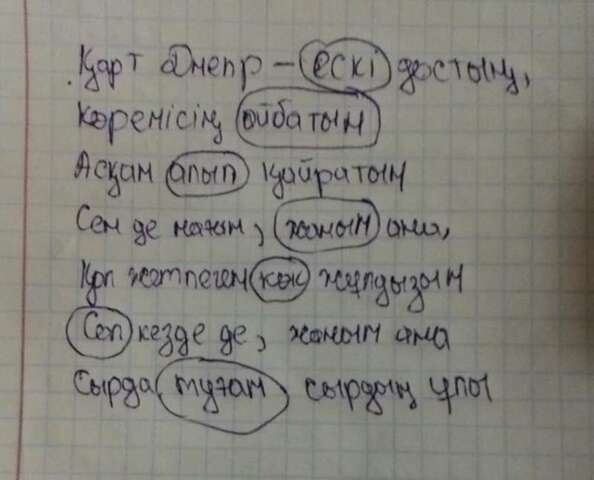 Қарт Днепр – ескі достың,
Көренісің ойбатын
Асқан алып қайратын
Сен де мағын, жаным ана,
Қол жетпеген көк жұлдызын
Сол кезде де, жаным ана
Сырда туған сырдың ұлы